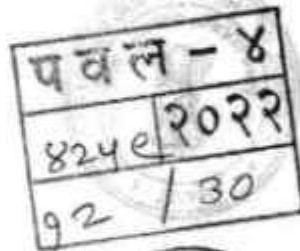 पवल - ४
४२५९ २०२२
१२ / ३०